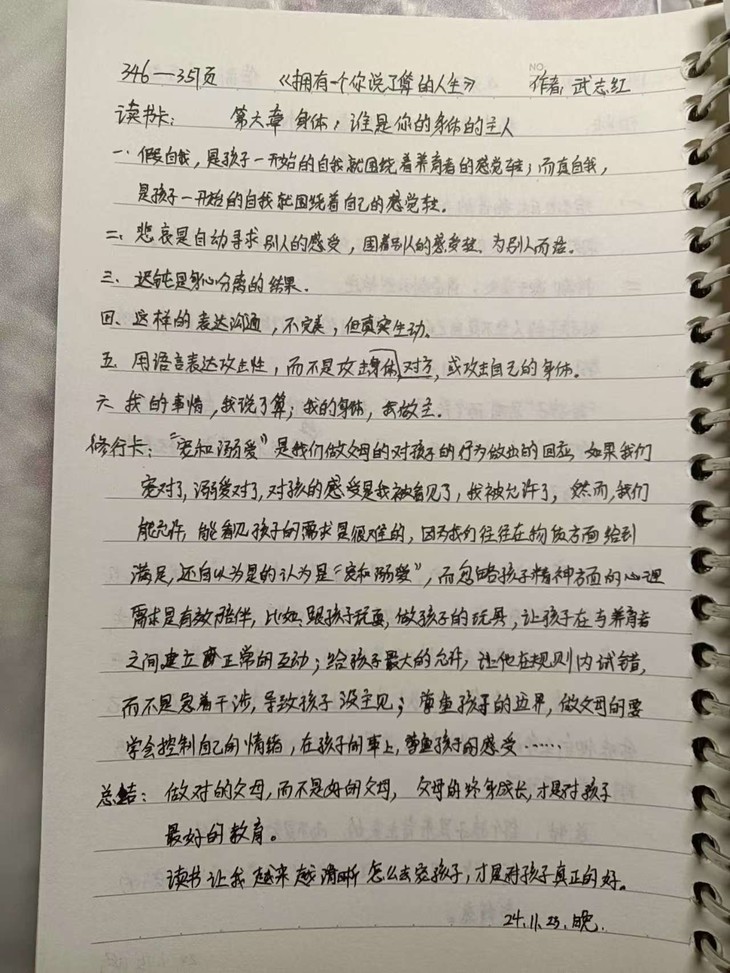 346—357页 《拥有一个你说了算的人生》 NO. 作者: 武志红
读书卡: 第六章 身体: 谁是你的身体的主人
一. 假自我, 是孩子一开始的自我就围绕着养育者的感觉转; 而真自我,
是孩子一开始的自我就围绕着自己的感觉转.
二. 悲哀是自动寻求别人的感受, 围着别人的感受转. 为别人而活.
三. 迟钝是身心分离的结果.
四. 这样的表达沟通, 不完美, 但真实生动.
五. 用语言表达攻击性, 而不是攻击身体, 对方, 或攻击自己的身体.
六. 我的事情, 我说了算; 我的身体, 我做主.
修行卡: “宠和溺爱” 是我们做父母的对孩子的行为做出的回应, 如果我们
宠对了, 溺爱对了, 对孩的感受是我被看见了, 我被允许了, 然而, 我们
能允许, 能看见孩子的需求是很难的, 因为我们往往在物质方面给到
满足, 还自以为是的认为是“宠和溺爱”, 而忽略孩子精神方面的心理
需求是有效陪伴, 比如: 跟孩子玩耍, 做孩子的玩具, 让孩子在与养育者
之间建立正常的互动; 给孩子最大的允许, 让他在规则内试错,
而不是急着干涉, 导致孩子没主见; 尊重孩子的边界, 做父母的要
学会控制自己的情绪, 在孩子的事上, 尊重孩子的感受……
总结: 做对的父母, 而不是好的父母, 父母的终身成长, 才是对孩子
最好的教育。
读书让我越来越清晰怎么去宠孩子, 才是对孩子真正的好。
24.11.25. 晚.